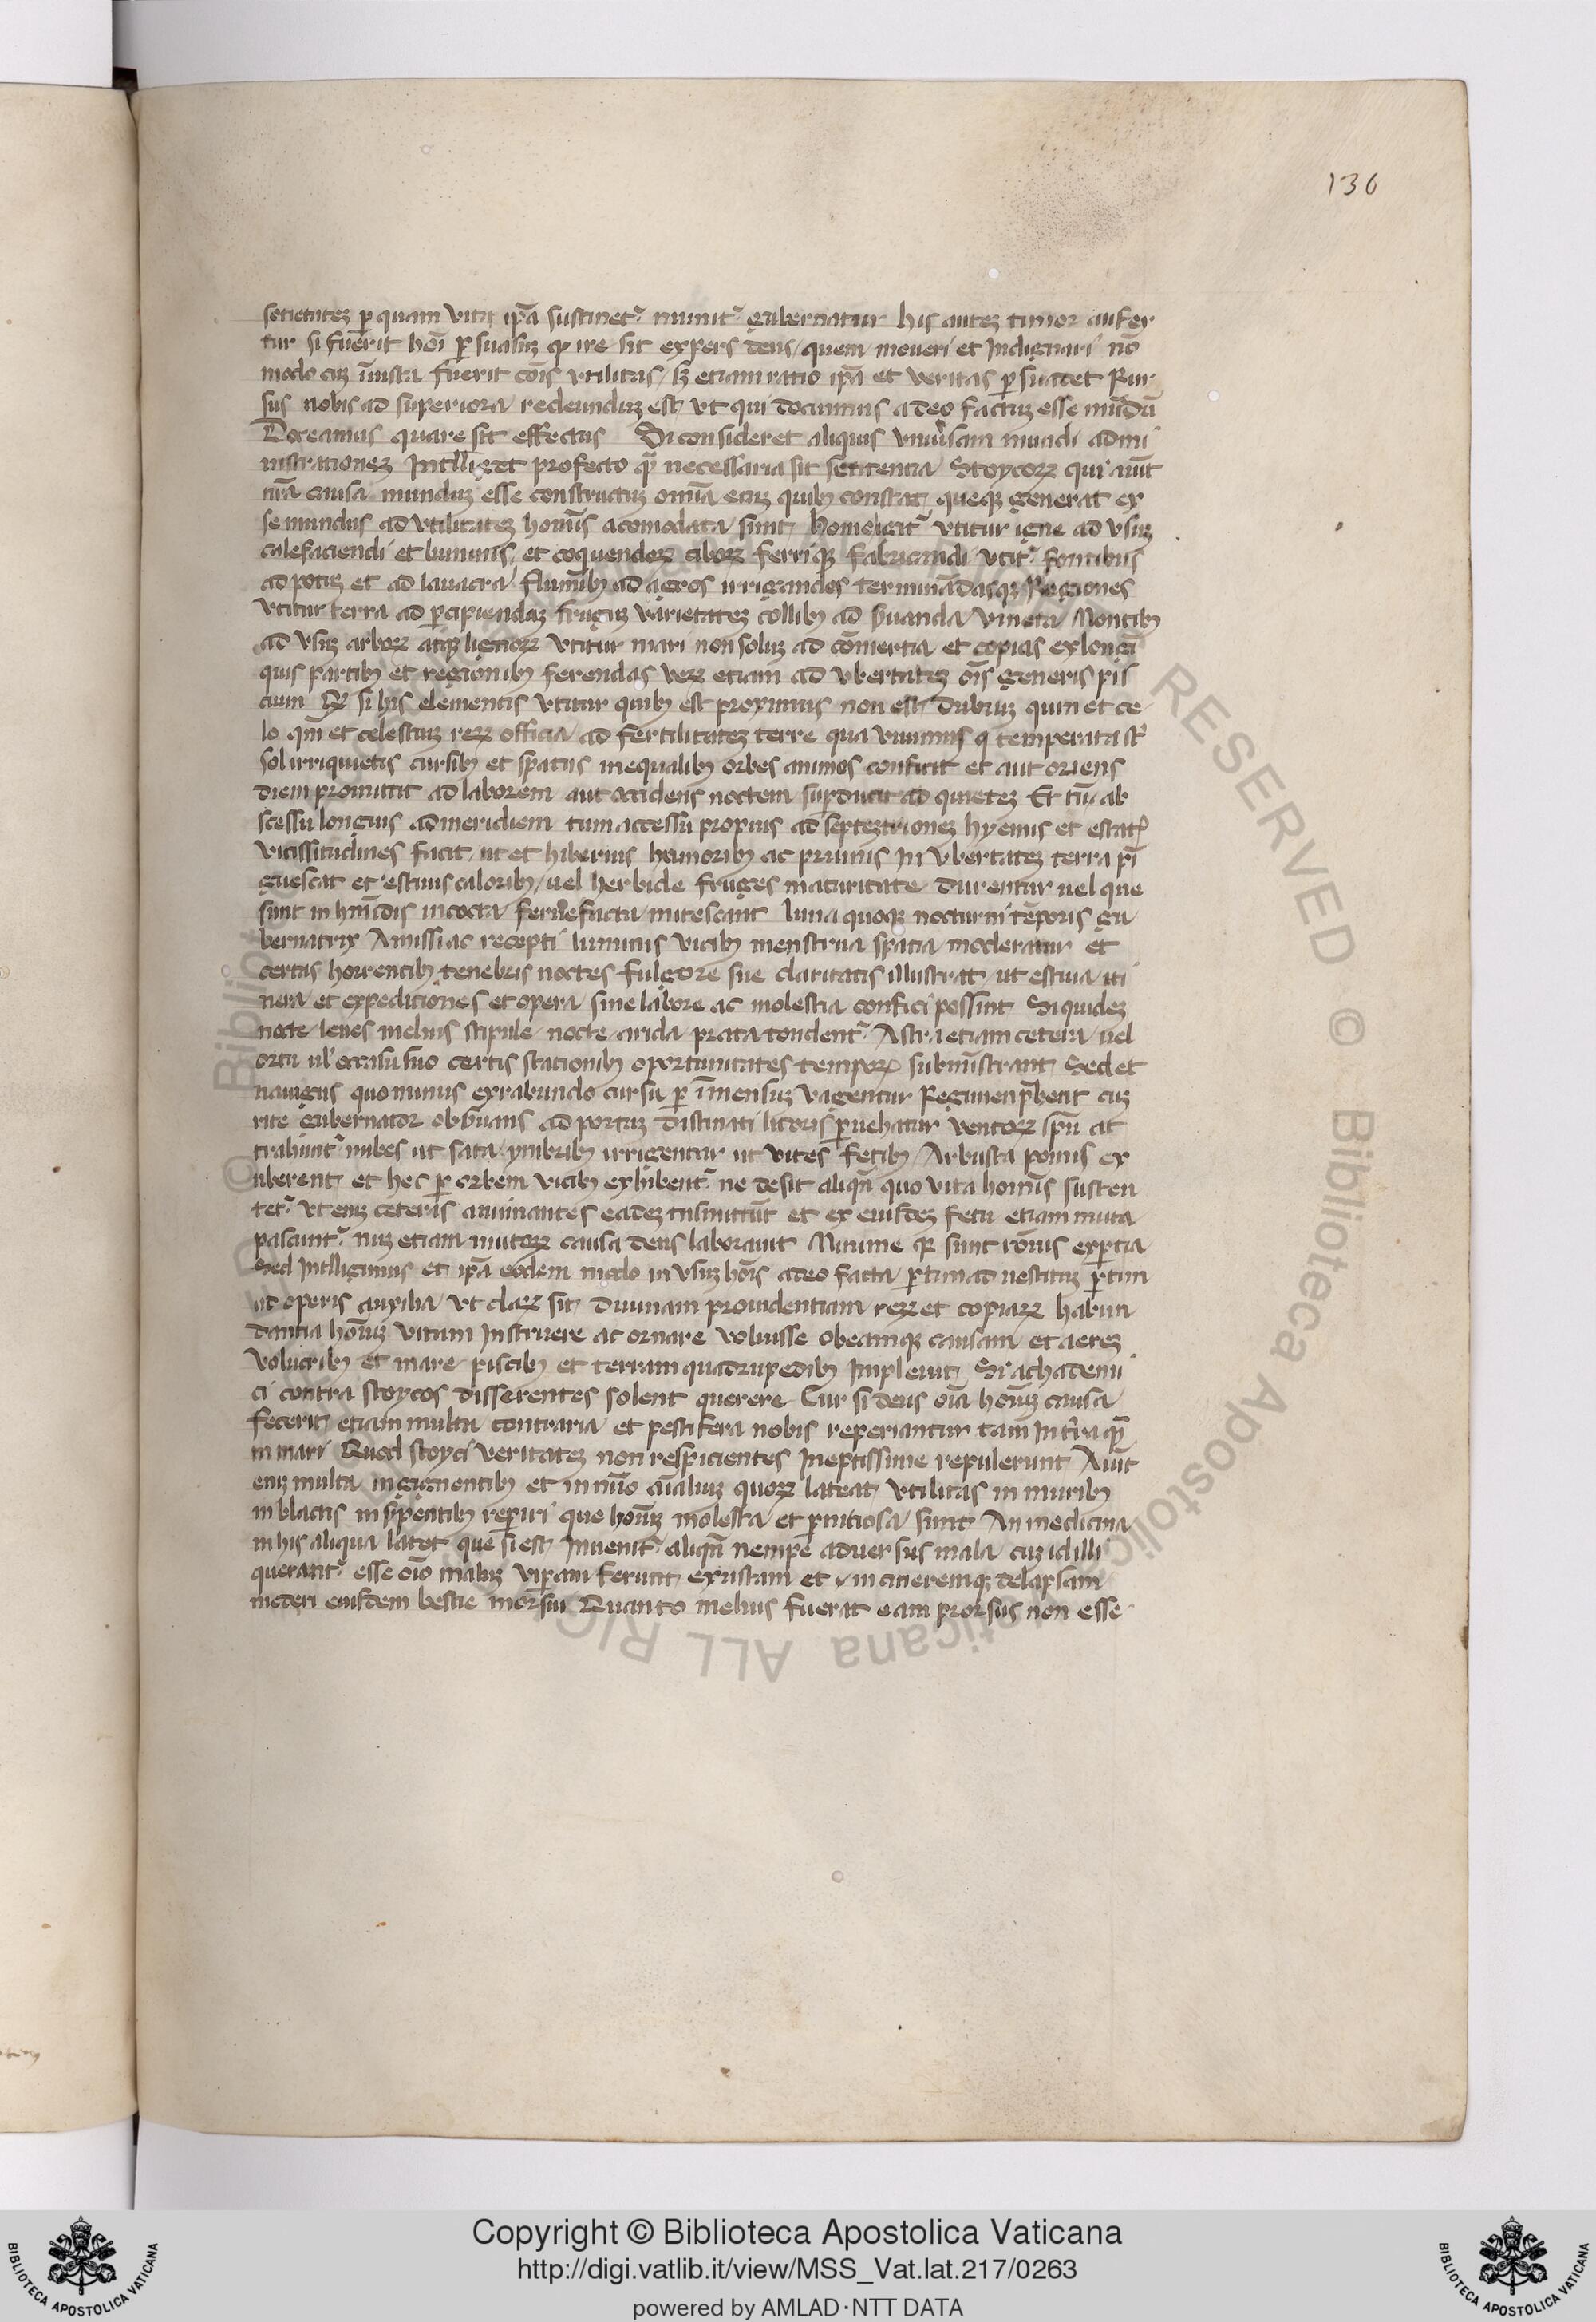 136
societatez ꝑ quam vita ip̄a sustinet᷑ munit᷑ gubernatur his autez timor aufer
tur si fuerit hoī ꝑsuasuz ꝙ ire sit expers deus quem moueri et Indignari nō
modo cuz īiusta fuerit cōis vtilitas sꝫ etiam ratio ip̄a et veritas ꝑsuadet Rur
sus nobis ad superiora redeunduz est vt qui docuimus a deo factuz esse mūdū
Doceamus quare sit effectus Si consideret aliquis vniuꝰsam mundi admi
nistrationez Intlliget profecto qͣ necessaria sit sententia Stoycoꝝ qui aiūt
nrā causa munduz esse constructuz omīa eniz quibꝫ constat queqꝫ generat ex
se mundus ad vtilitatez homīs acomodata sunt homo igit᷑ vtitur igne ad vsuz
calefaciendi et luminis et coquendoꝝ ciboꝝ ferriqꝫ fabricandi vtit᷑ fontibus
ad potuz et ad lauacra flumībꝫ ad agros irrigandos terminādasqꝫ Regiones
vtitur terra ad ꝑcipiendaz frugiuz varietatez collibꝫ ad ẜuanda vineta Montibꝫ
ad vsuz arboꝝ atqꝫ lignoꝝ vtitur mari non soluz ad cōmertia et copias ex longī
quis partibꝫ et regionibꝫ ferendas veꝝ etiam ad vbertatez oīs generis pis
cium Qͩ si his elementis vtitur quibꝫ est proximus non est dubiuz quin et ce
lo qm̄ et celestiuz reꝝ officia ad fertilitatez terre qua viuimus temperata st̄
Sol irriquietis cursibꝫ et spatiis inequalibꝫ orbes annuos conficit et aut oriens
diem promittit ad laborem aut occidens noctem suꝑducit ad quietez Et tū ab
scessu longius ad meridiem tum accessu propius ad septeztrionez hyemis et estat᷑
vicissitudines facit ut et hibernis humoribꝫ ac pruinis In vbertatez terra pī
guescat et estiuis caloribꝫ uel herbide fruges maturitate durentur uel que
sunt in humīdis incocta feruefacta mitescant luna quoqꝫ nocturni tēporis gu
bernatrix Amissi ac recepti luminis vicibꝫ menstrua spatia moderatur et
certis horrentibꝫ tenebris noctes fulgore sue claritatis illustrat ut estiua iti
nera et expeditiones et opera sine labore ac molestia confici possint Siquidez
nocte leues melius stipule nocte arida prata tondent᷑ Astra etiam cetera uel
ortu ul̉ occasu suo certis stationibꝫ oportunitates tempoꝝ subminīstrant Sed et
nauigiis quominus exrabundo cursu ꝑ īmensuz vagentur Regimen p̄bent cuz
rite gubernator obẜuans ad portuz distinati litoris ꝑuehatur ventoꝝ spū at
trahunt᷑ nubes ut sata ymbribꝫ irrigentur ut vites fetibꝫ Arbusta pomis ex
uberent et hec ꝑ orbem vicibꝫ exhibent᷑ ne desit aliqn̄ quo vita homīs susten
tet᷑ vt eniz ceteris animantes eadez et ex eiusdez fetu etiam muta
pascunt᷑ nuz etiam mutoꝝ causa deus laborauit Minime qꝛ sunt rōnis exꝑtia
Sed Intlligimus et ip̄a eodem modo in vsuz hoīs a deo facta ꝑtim ad uestituz ꝑtim
ad operis auxilia vt claꝝ sit diuinam prouidentiam reꝝ et copiaꝝ habun
dantia hoīuz vitam Instruere ac ornare voluisse obeamqꝫ causam et aerez
volucribꝫ et mare piscibꝫ et terram quadrupedibꝫ Impleuit Si achademi
ci contra stoycos disserentes solent querere Cur si deus oīa hoīuz causa
fecerit etiam multa contraria et pestifera nobis reperiantur tam In tr̄ra qͣꝫ
in mari Quod stoyci veritatez non respicientes Ineptissime repulerunt Aiūt
eniz multa in gignentibꝫ et in nūo aīaliuz quoꝝ lateat vtilitas in muribꝫ
in blactis in ẜpentibꝫ reꝑiri que hoīuz molesta et ꝑnitiosa sunt An medicina
in his aliqua latet que si est Inuenit᷑ aliqn̄ nempe aduersus mala cuz id illi
querant᷑ esse oīo maluz viꝑam ferunt exustam et in cineremqꝫ delapsam
mederi eiusdem bestie morsui Quanto melius fuerat eam prorsus non esse
Copyright © Biblioteca Apostolica Vaticana
http://digi.vatlib.it/view/MSS_Vat.lat.217/0263
powered by AMLAD·NTT DATA
BIBLIOTECA APOSTOLICA VATICANA
BIBLIOTECA APOSTOLICA VATICANA